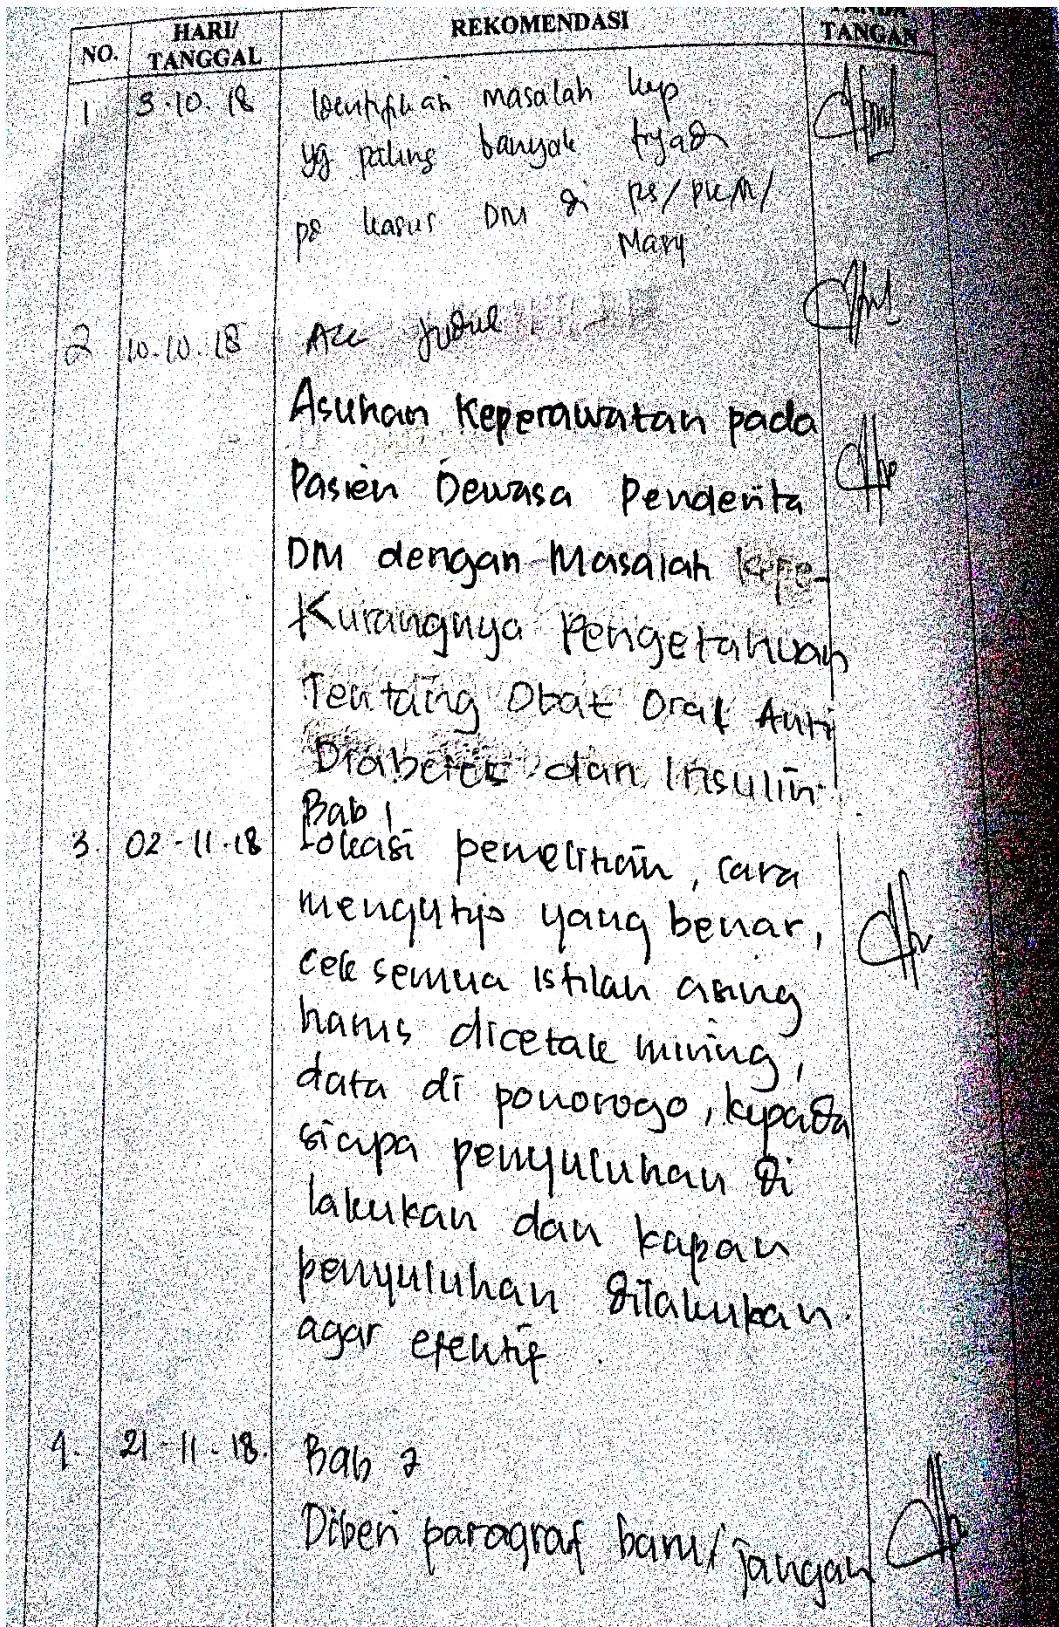 NO. HARI/ TANGGAL REKOMENDASI TANDA TANGAN
1 3-10.18 Identifikasi masalah kep
yg paling banyak terjadi
ps kasus DM di RS/PKM/
Masy
2 10-10.18 Acc Judul
Asuhan Keperawatan pada
Pasien Dewasa Penderita
DM dengan Masalah
Kurangnya Pengetahuan
Tentang Obat Oral Anti
Diabetes dan Insulin
Bab 1
3. 02-11-18 Lokasi penelitian, cara
mengutip yang benar,
cek semua istilah asing
harus dicetak miring,
data di ponorogo, kepada
siapa penyuluhan di
lakukan dan kapan
penyuluhan dilakukan
agar efektif.
4. 21-11-18. Bab 2
Diberi paragraf baru/jangan